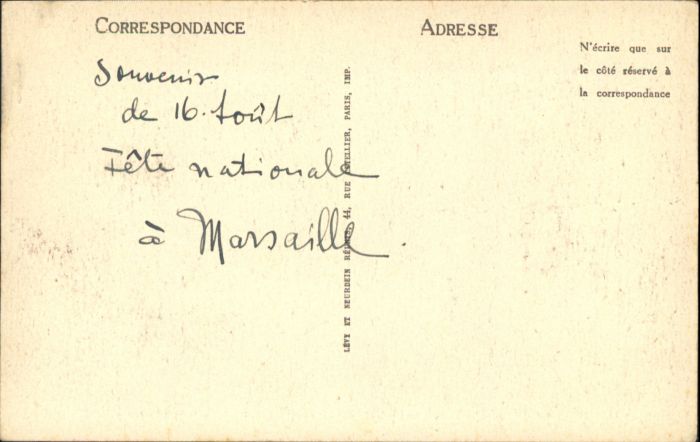 CORRESPONDANCE
ADRESSE
N'écrire que sur
le côté réservé à
la correspondance
Souvenir
de 16. toût
Fête nationale
à Marsaille.
LÉVY ET NEURDEIN RÉUNIS, 44, RUE LETELLIER, PARIS, IMP.